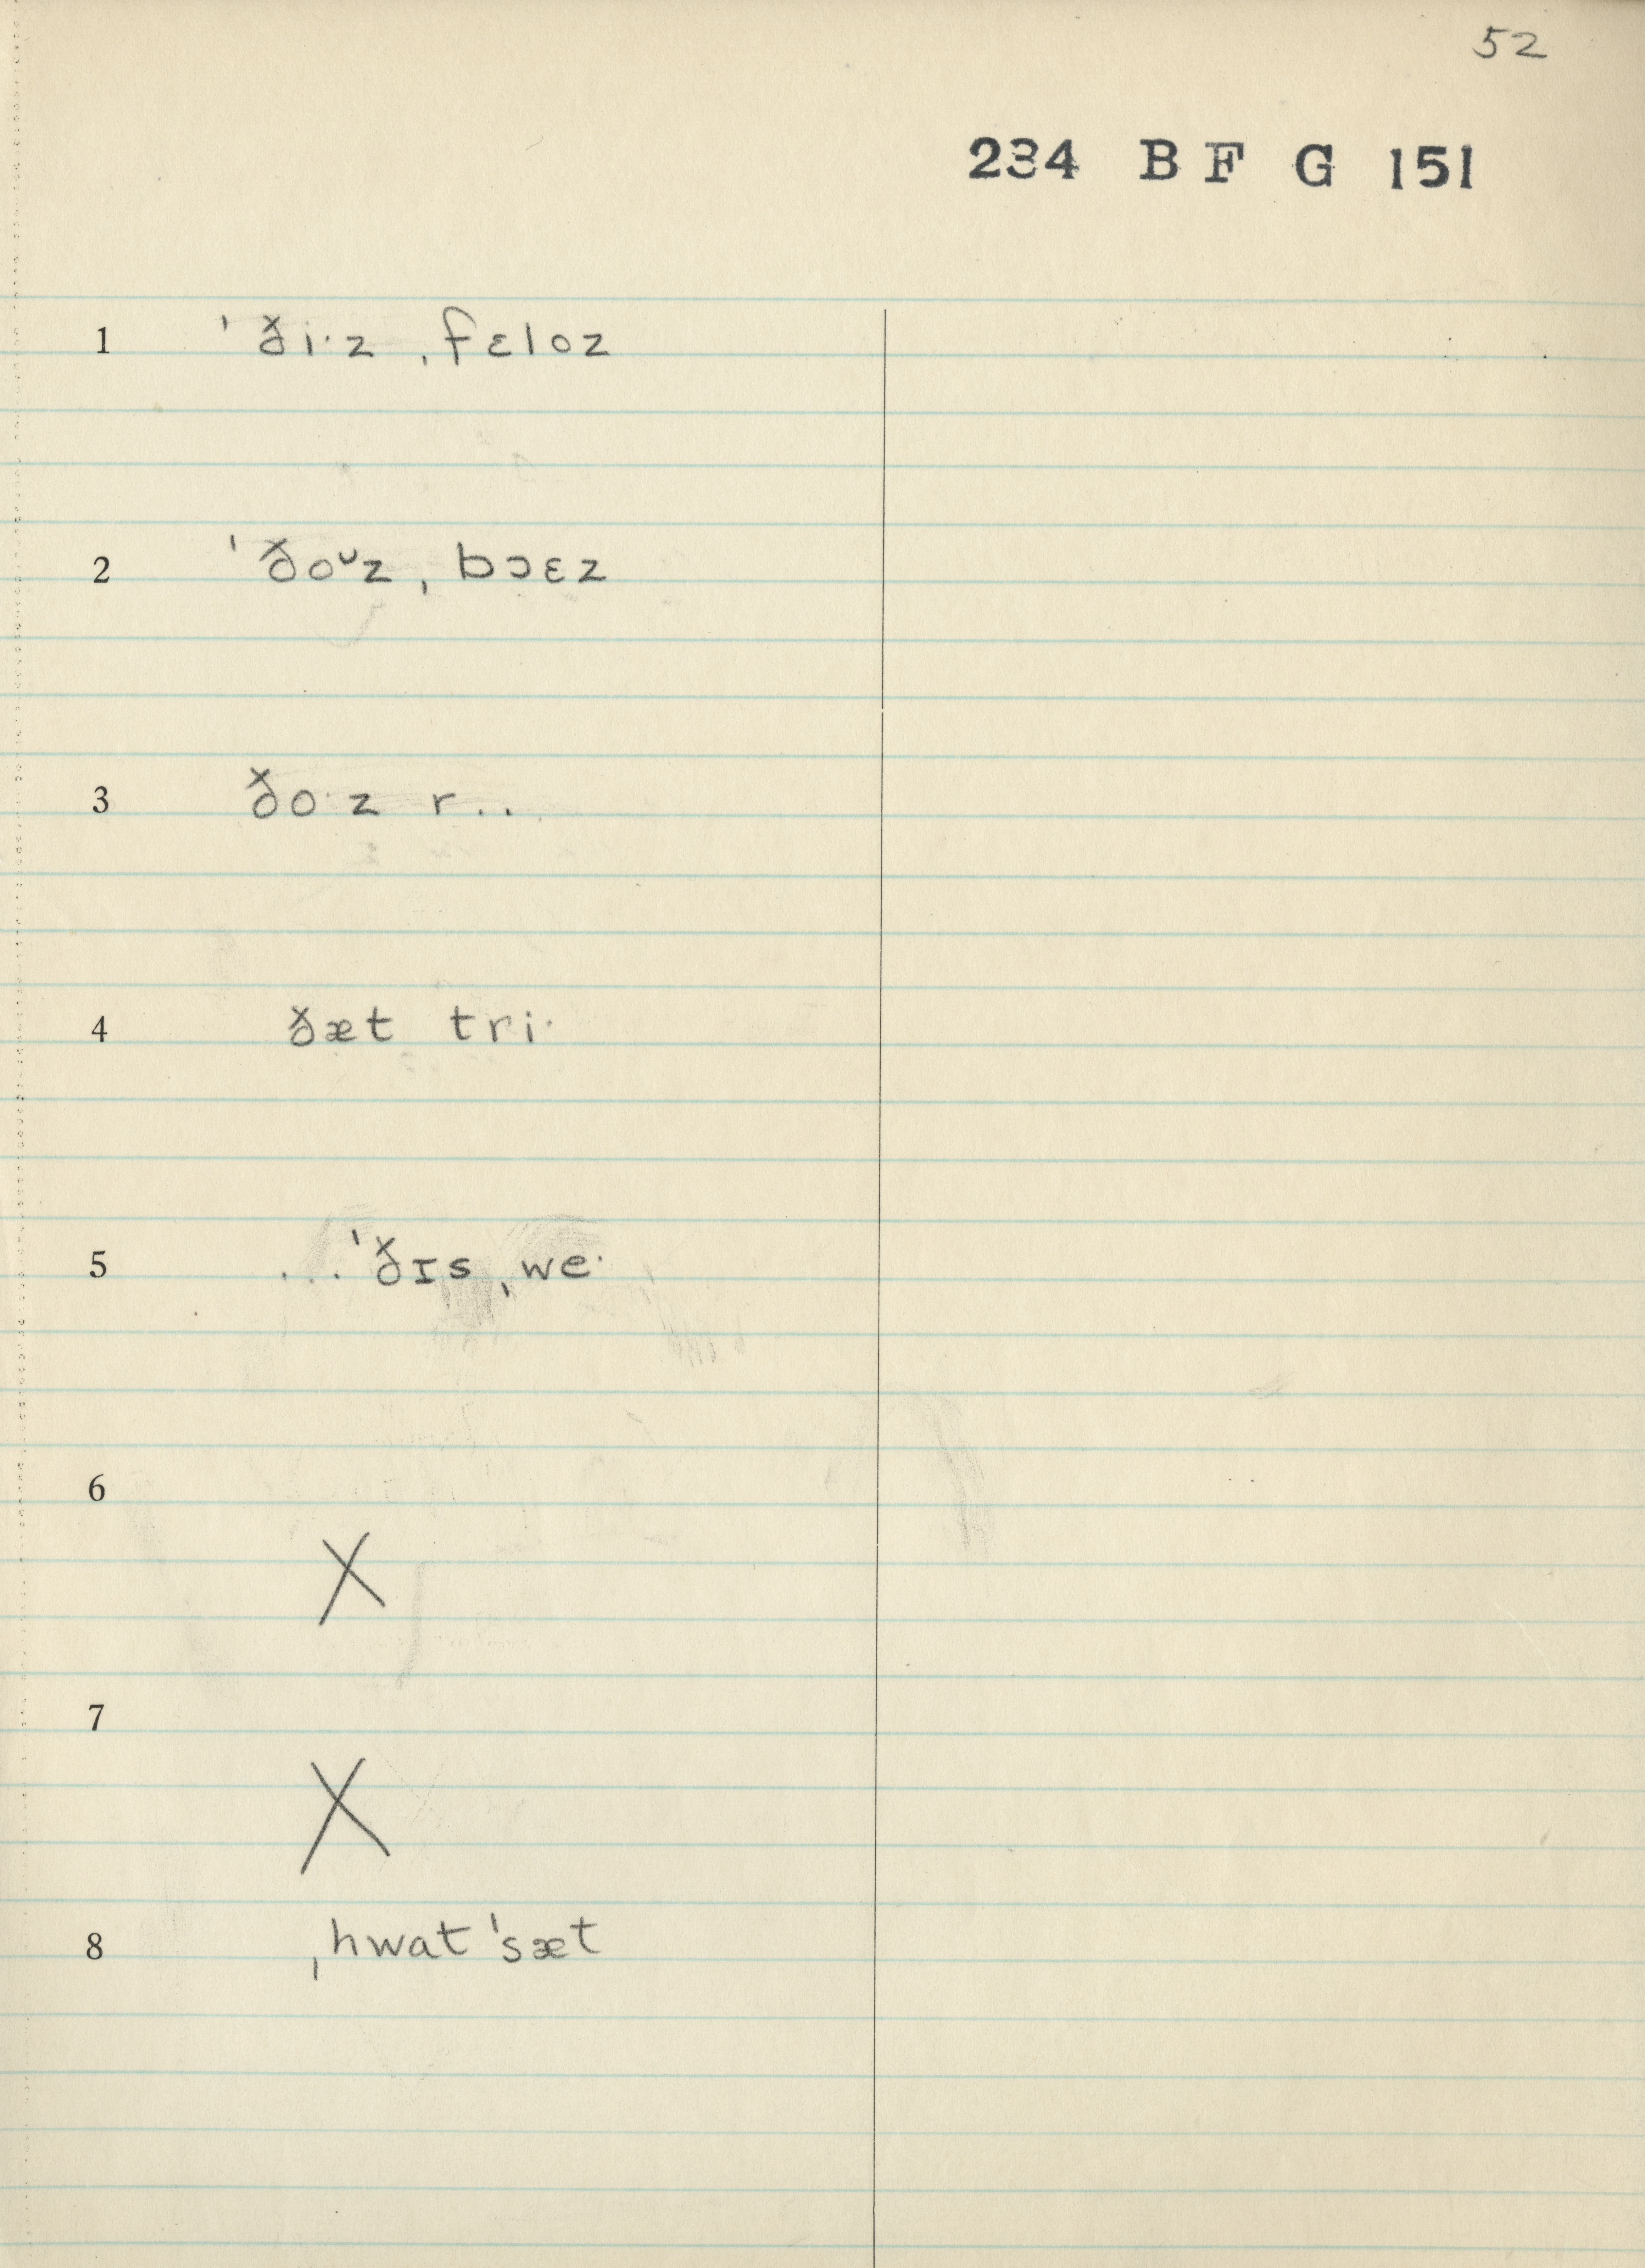 52
234 B F G 151
1 ˈði·z ˌfɛloz
2 ˈðoᵕz ˌbɔɛz
3 ðo·z r..
4 ðæt tri·
5 ...ˈðɪs ˌwe·
6
X
7
X
8 ˌhwat ˈsæt